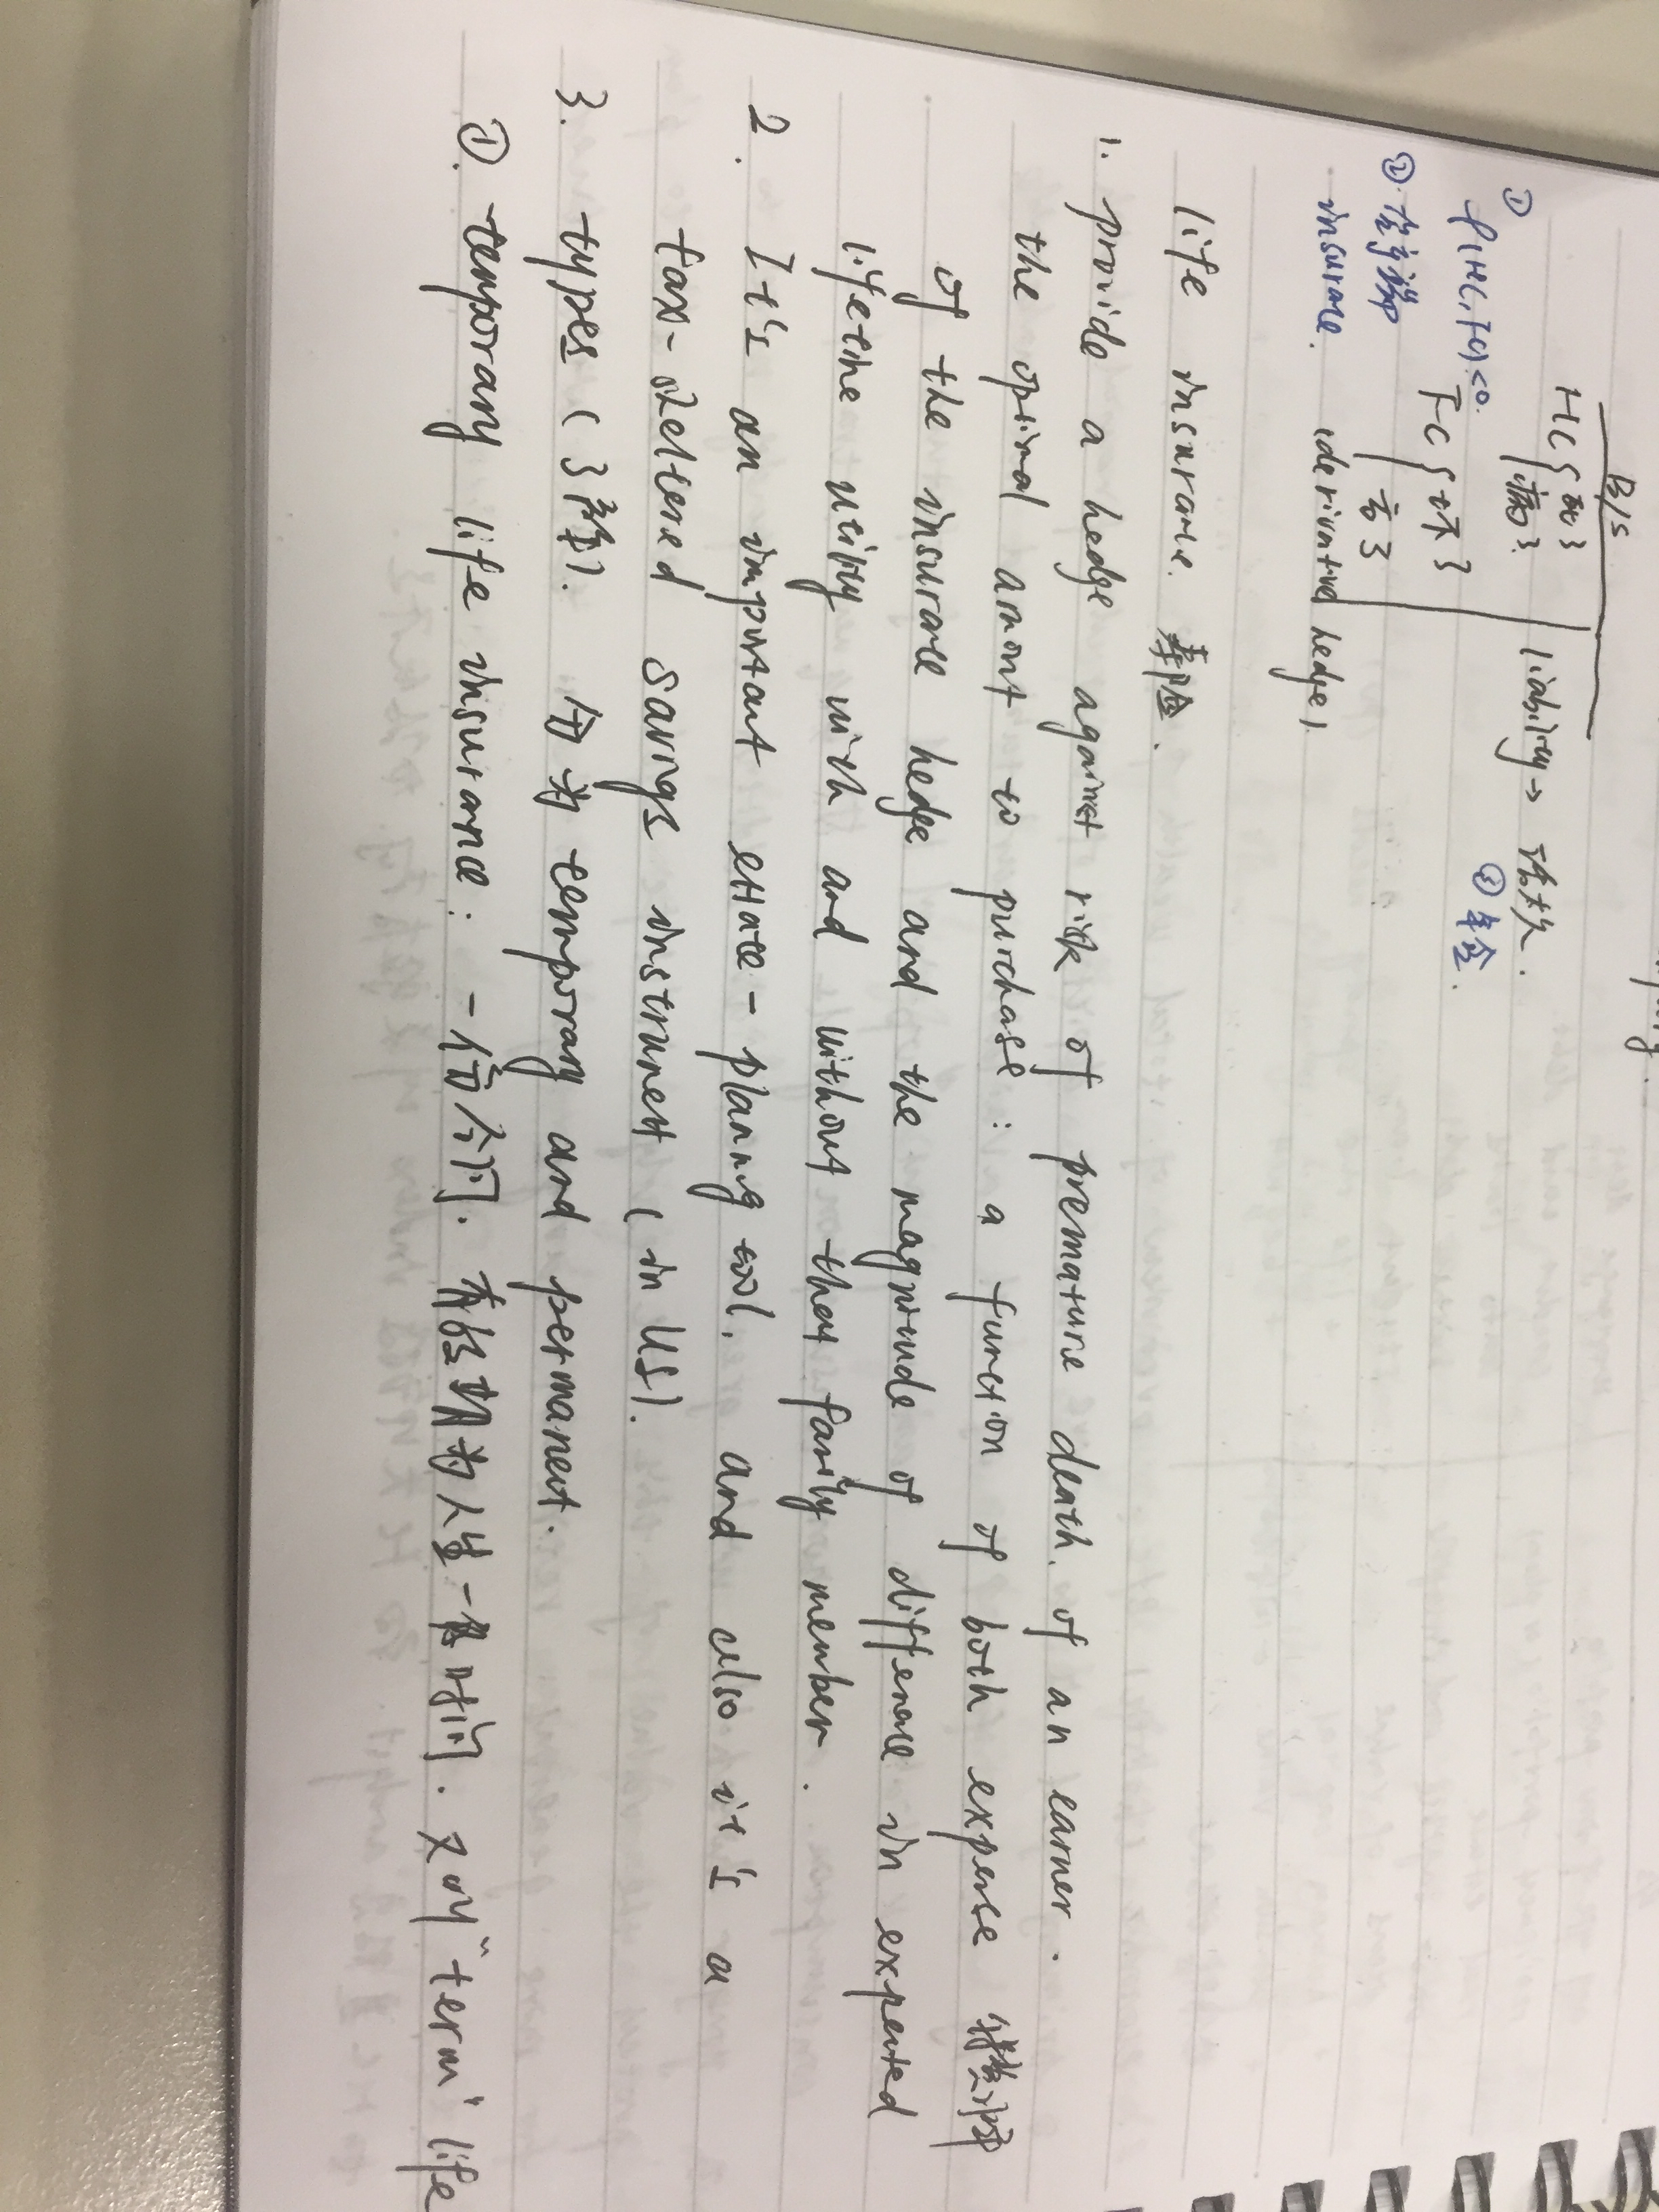 B/S
HC { 死了 liability → 活太久.
病了.
① ρ(HC, FC) < 0. FC { 坏了 ③ 年金.
② 财产险 亏了
insurance. (derivative hedge).
life insurance. 寿险.
1. provide a hedge against risk of premature death of an earner.
the optimal amont to purchase: a function of both expense
of the insurance hedge and the magnitude of difference in expected
lifetime utility with and without that family member.
2. It's an important estate-planning tool. and also it's a
tax-sheltered savings instrument (in US).
3. types (3种). 分为 temporary and permanent.
①. temporary life insurance: 一份合同. 有效期为人生一段时间. 又叫 "term" life